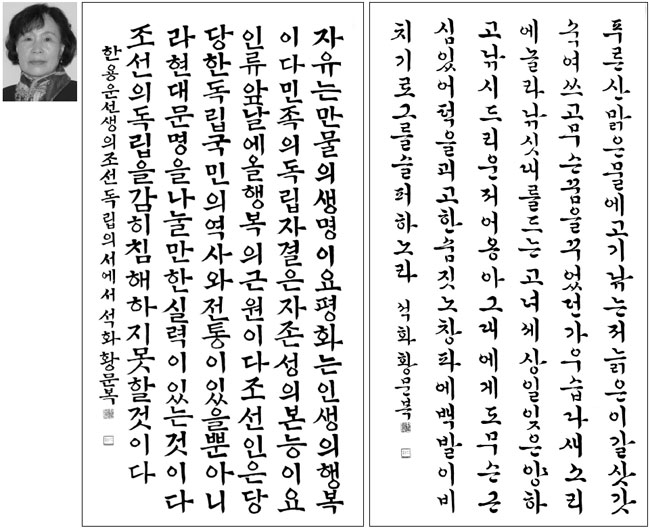 자유는만물의생명이요평화는인생의행복
이다민족의독립자결은자존성의본능이요
인류앞날에올행복의근원이다조선인은당
당한독립국민의역사와전통이있을뿐아니
라현대문명을나눌만한실력이있는것이다
조선의독립을감히침해하지못할것이다
한용운선생의조선독립의서에서석화황문복
푸른산맑은물에고기낚는저늙은이갈삿갓
숙여쓰고무슨꿈을꾸었던가우습다새소리
에놀라낚싯대를드는고녀세상일잊은양하
고낚시드리운저어옹아그대에게도무슨근
심있어턱을괴고한숨짓노창파에백발이비
치기로그를슬퍼하노라 석화황문복